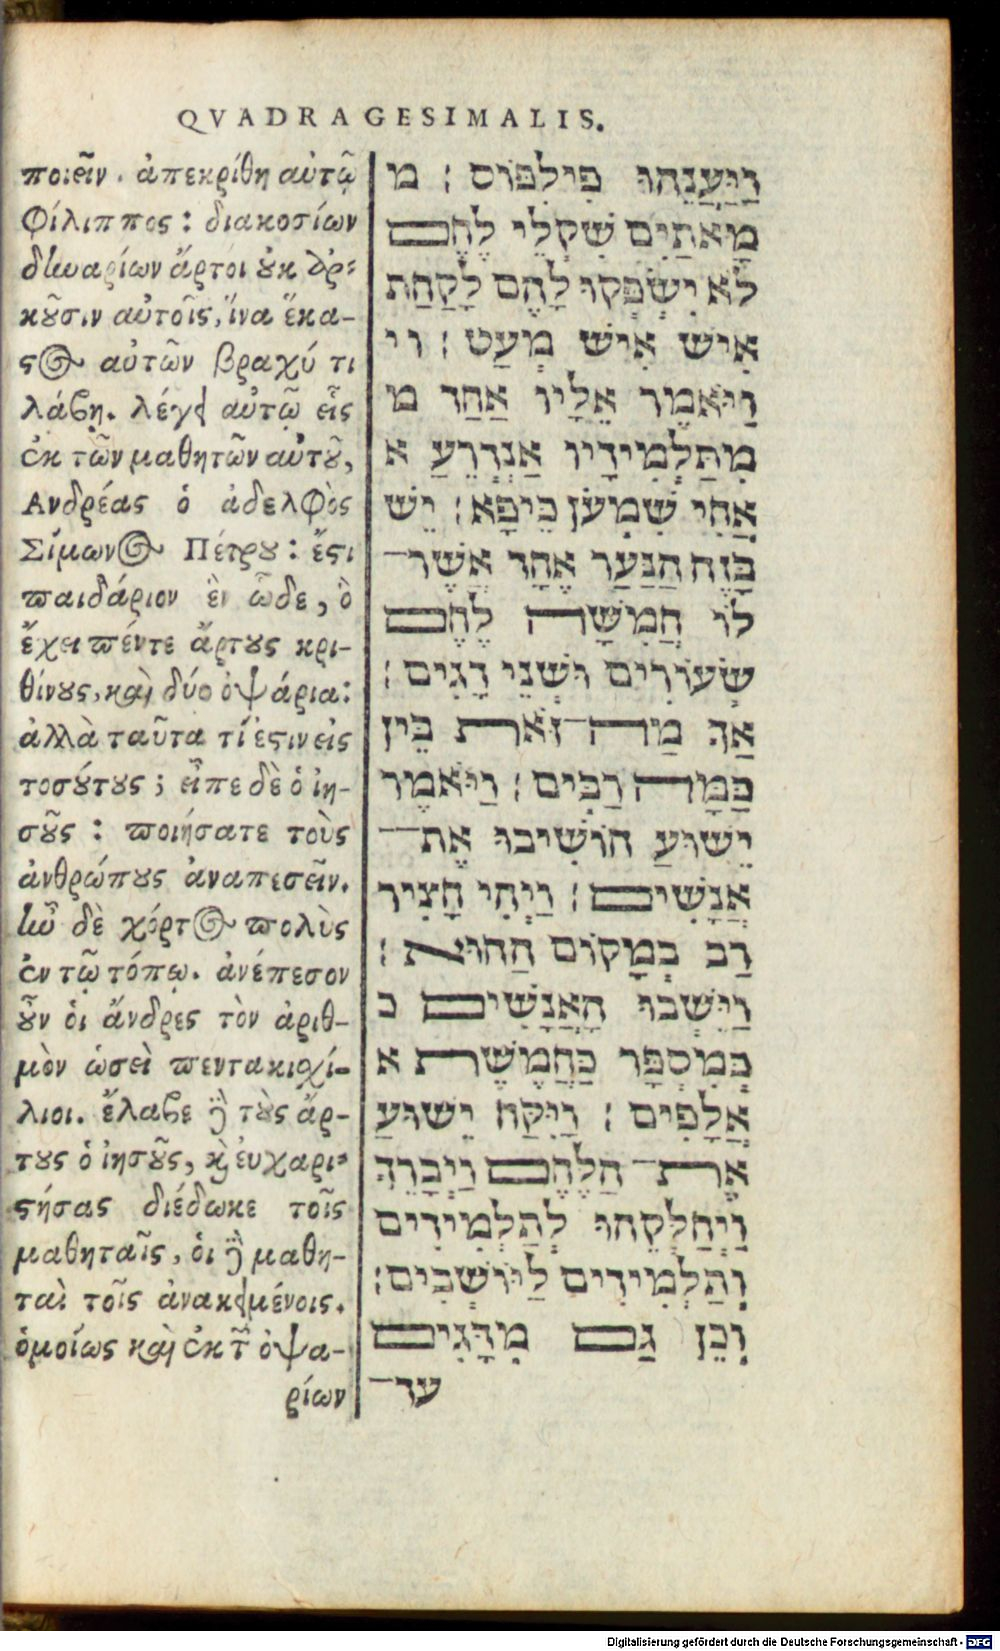 QVADRAGESIMALIS.
ποιεῖν. ἀπεκρίθη αὐτῷ
Φίλιππος: διακοσίων
δηναρίων ἄρτοι οὐκ ἀρ-
κοῦσιν αὐτοῖς, ἵνα ἕκα-
στος αὐτῶν βραχύ τι
λάβῃ. λέγει αὐτῷ εἷς
ἐκ τῶν μαθητῶν αὐτοῦ,
Ανδρέας ὁ ἀδελφὸς
Σίμωνος Πέτρου: ἔστι
παιδάριον ἓν ὧδε, ὃ
ἔχει πέντε ἄρτους κρι-
θίνους, καὶ δύο ὀψάρια:
ἀλλὰ ταῦτα τί ἐστιν εἰς
τοσούτους; εἶπε δὲ ὁ ἰη-
σοῦς: ποιήσατε τοὺς
ἀνθρώπους ἀναπεσεῖν.
ἦν δὲ χόρτος πολὺς
ἐν τῷ τόπῳ. ἀνέπεσον
οὖν οἱ ἄνδρες τὸν ἀριθ-
μὸν ὡσεὶ πεντακισχί-
λιοι. ἔλαβε δὲ τοὺς ἄρ-
τους ὁ ἰησοῦς, καὶ εὐχαρι-
στήσας διέδωκε τοῖς
μαθηταῖς, οἱ δὲ μαθη-
ταὶ τοῖς ἀνακειμένοις.
ὁμοίως καὶ ἐκ τῶν ὀψα-
ρίων
וַיַּעֲנֵהוּ פִילִפּוֹס : מ
מָאתַיִם שִׁקְלֵי לֶחֶם
לֹא יִשְׂפְּקוּ לָהֶם לָקַחַת
אִישׁ אִישׁ מְעַט : וי
וַיֹּאמֶר אֵלָיו אַחַד מ
מִתַּלְמִידָיו אַנְדְרֵעַ א
אֲחִי שִׁמְעֹן כֵּיפָא : יֵשׁ
בָּזֶה הַנַּעַר אֶחָד אֲשֶׁר־
לוֹ חֲמִשָּׁה לֶחֶם
שְׂעוֹרִים וּשְׁנֵי דָגִים :
אַךְ מַה־זֹּאת בֵּין
כַּמָּה רַבִּים : וַיֹּאמֶר
יֵשׁוּעַ הוֹשִׁיבוּ אֶת־
אֲנָשִׁים : וַיְהִי חָצִיר
רַב בְּמָקוֹם הַהוּא :
וַיֵּשְׁבוּ הָאֲנָשִׁים כ
בְּמִסְפָּר כַּחֲמֶשֶׁת א
אֲלָפִים : וַיִּקַּח יֵשׁוּעַ
אֶת־הַלֶּחֶם וַיְבָרֵךְ
וַיְחַלְּקֵהוּ לְתַלְמִידִים
וְתַלְמִידִים לַיּוֹשְׁבִים :
וְכֵן גַּם מִדָּגִים
עד־